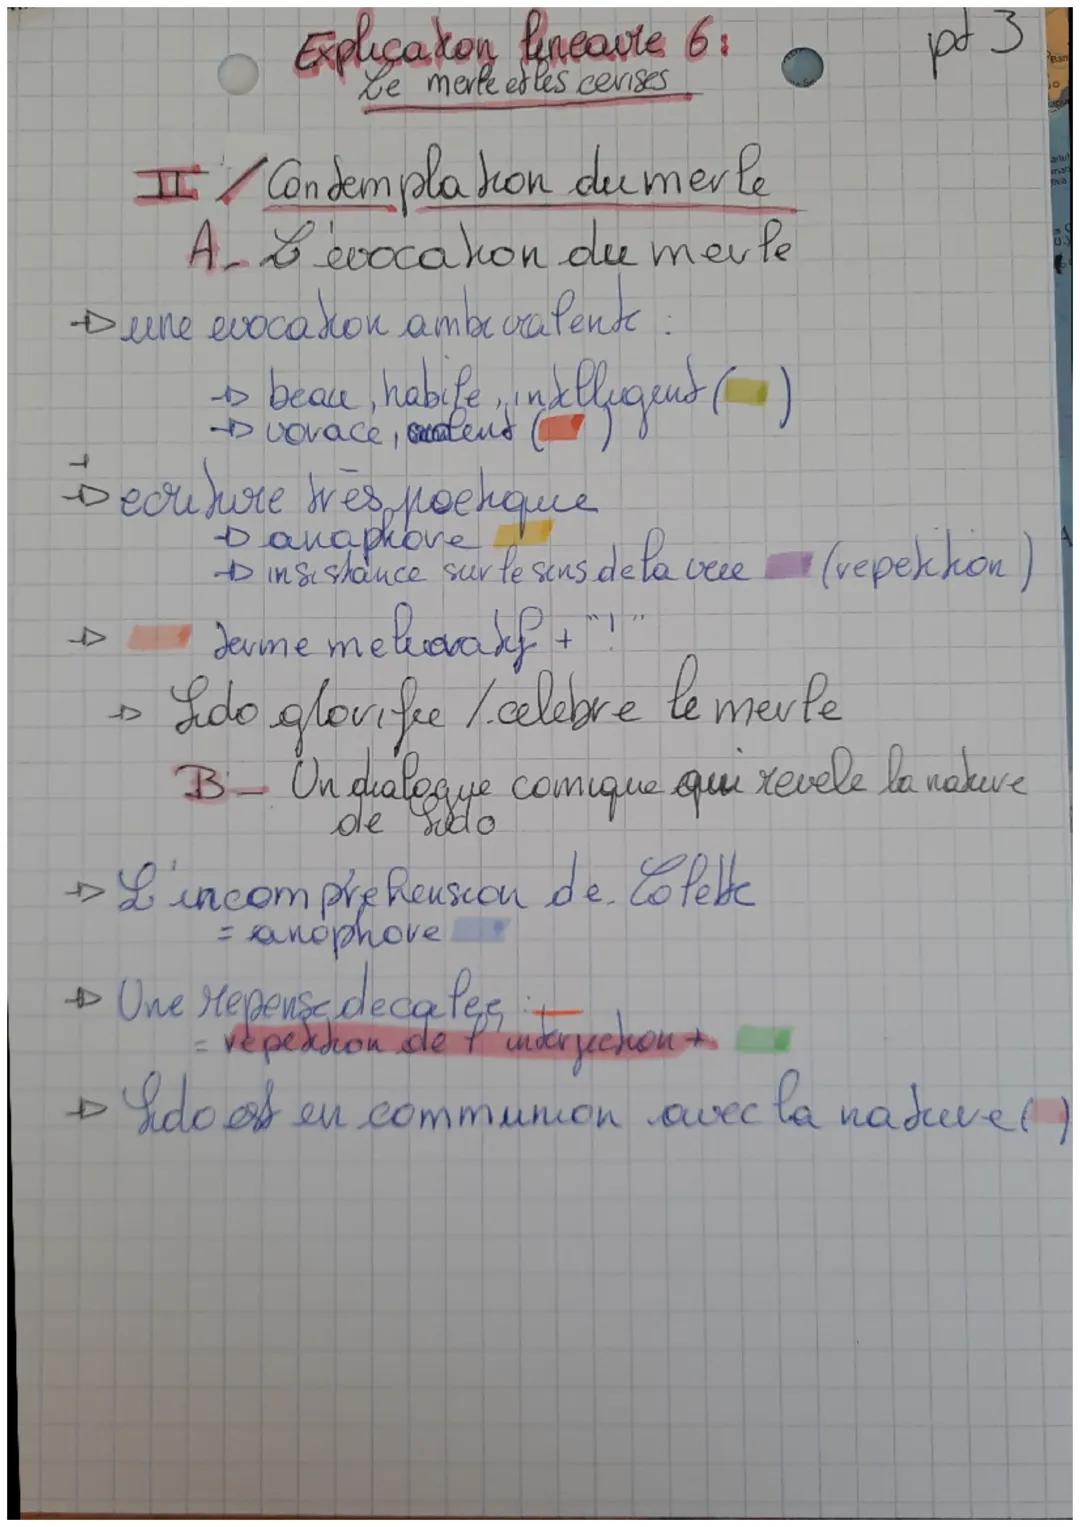 Explication lineaire 6: pt 3
Le merle et les cerises
II / Contemplation du merle
A_ L'évocation du merle
→ une evocation ambivalente :
→ beau, habile, intellugent ( )
→ vorace, ( )
→ ecriture très poetique
→ anaphore
→ insistance sur le sens de la vue (repetition)
→ terme melioratif + "!"
→ Sido glorifie / celebre le merle
B_ Un dialogue comique qui revele la nature
de Sido
→ L'incomprehension de Colette
= anaphore
→ Une repense decalee :
= repetition de l'interjection +
→ Sido est en communion avec la nature ( )